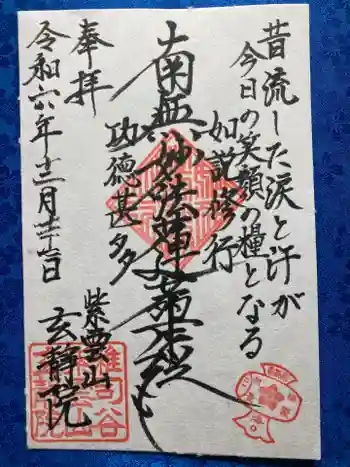 昔流した涙と汗が
今日の笑顔の糧となる
如説修行
南無妙法蓮華経
功徳甚多
奉拝
令和六年十二月廿六日
紫雲山
玄静院
雑司谷